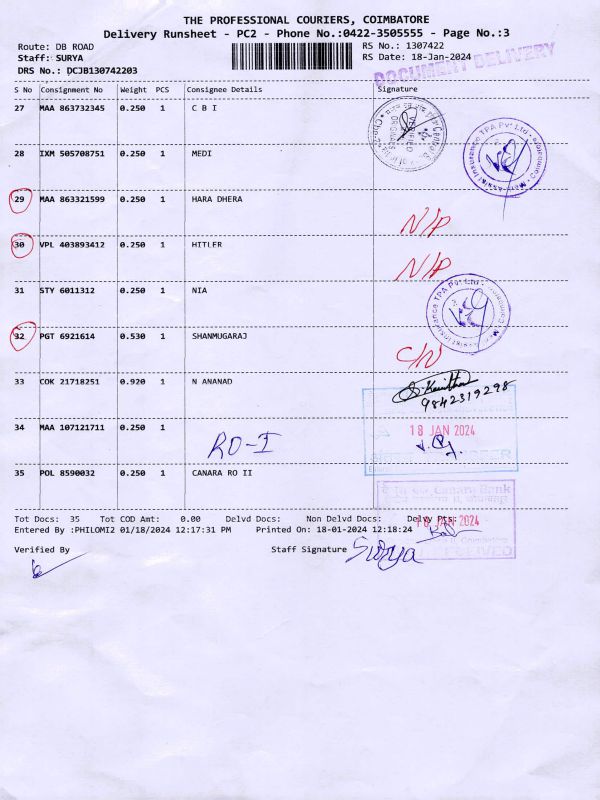 THE PROFESSIONAL COURIERS, COIMBATORE
Delivery Runsheet - PC2 - Phone No.:0422-3505555 - Page No.:3
Route: DB ROAD RS No.: 1307422
Staff: SURYA RS Date: 18-Jan-2024
DRS No.: DCJB130742203
DOCUMENT DELIVERY
S No Consignment No Weight PCS Consignee Details Signature
27 MAA 863732345 0.250 1 C B I
28 IXM 505708751 0.250 1 MEDI
29 MAA 863321599 0.250 1 HARA DHERA
N/P
30 VPL 403893412 0.250 1 HITLER
N/P
31 STY 6011312 0.250 1 NIA
32 PGT 6921614 0.530 1 SHANMUGARAJ
C/N
33 COK 21718251 0.920 1 N ANANAD
9842319298
34 MAA 107121711 0.250 1 RO-I
18 JAN 2024
35 POL 8590032 0.250 1 CANARA RO II
Canara Bank
Tot Docs: 35 Tot COD Amt: 0.00 Delvd Docs: Non Delvd Docs: Delvy Pts:
18 JAN 2024
Entered By :PHILOMI2 01/18/2024 12:17:31 PM Printed On: 18-01-2024 12:18:24
Verified By Staff Signature Surya
RECEIVED